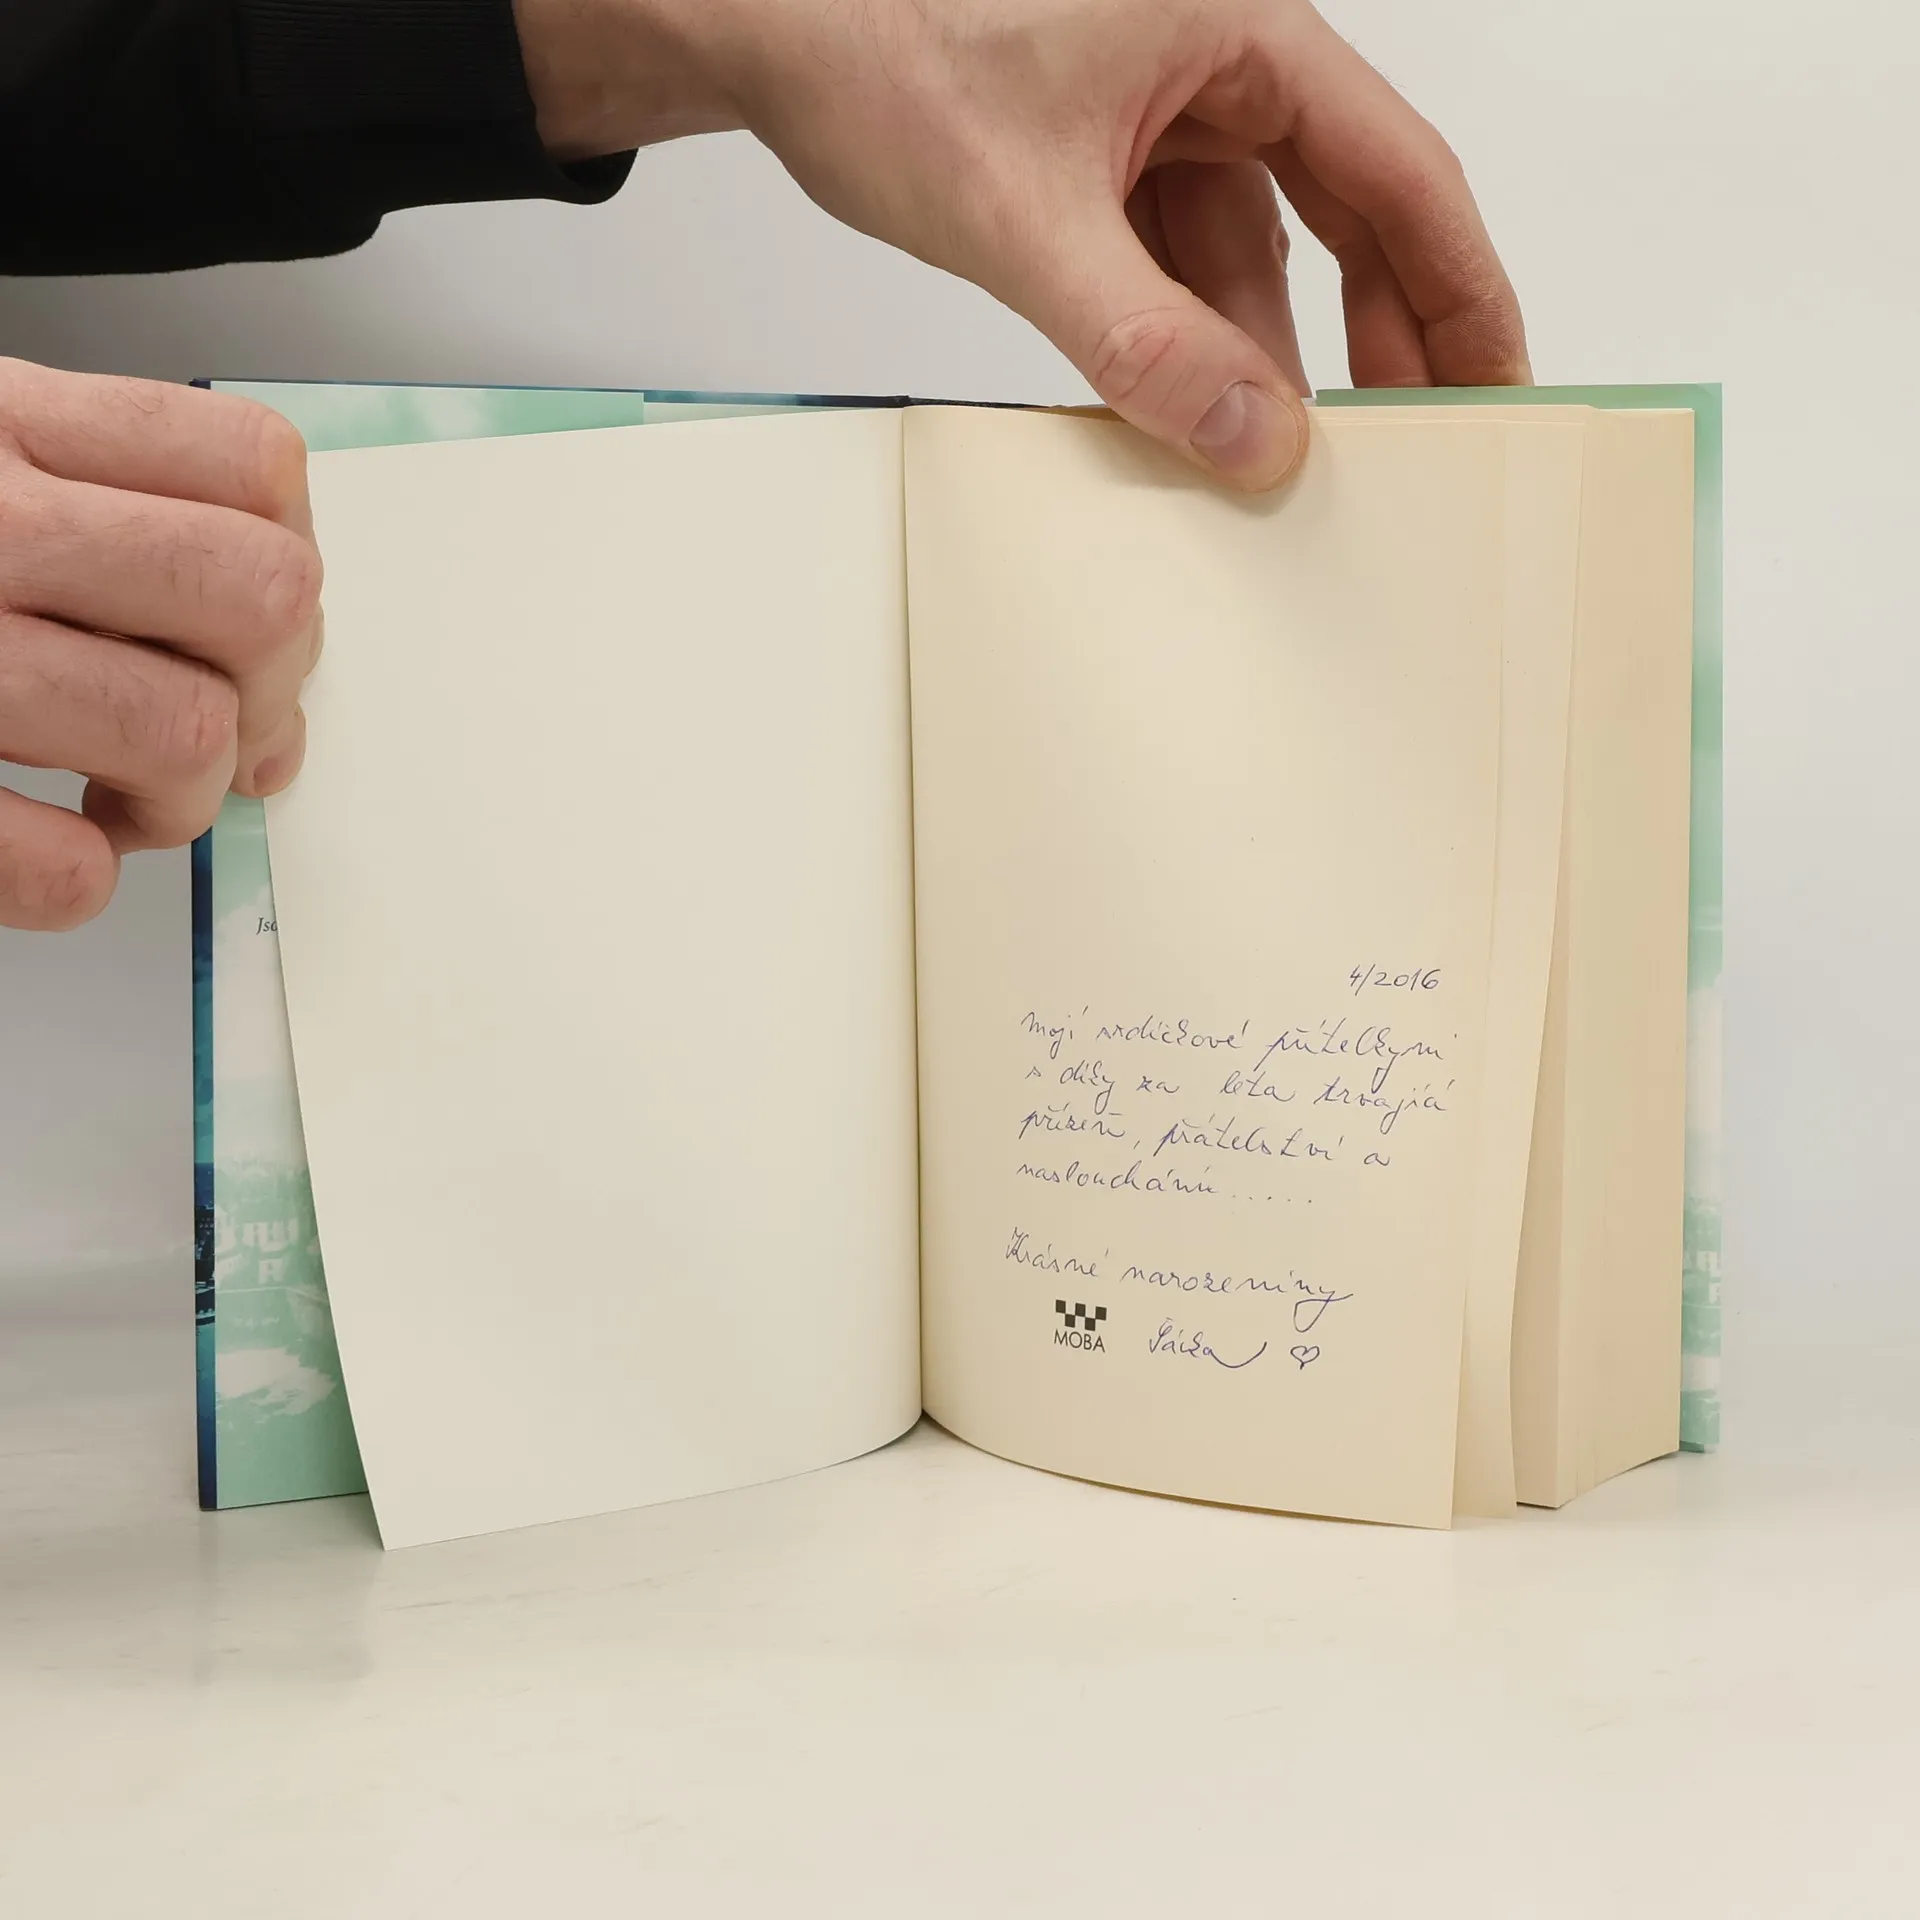 Jso
4/2016
mojí srdíčkové přítelkyni
s díky za léta trvající
přízeň, přátelství a
naslouchání.....
Krásné narozeniny
MOBA
♡